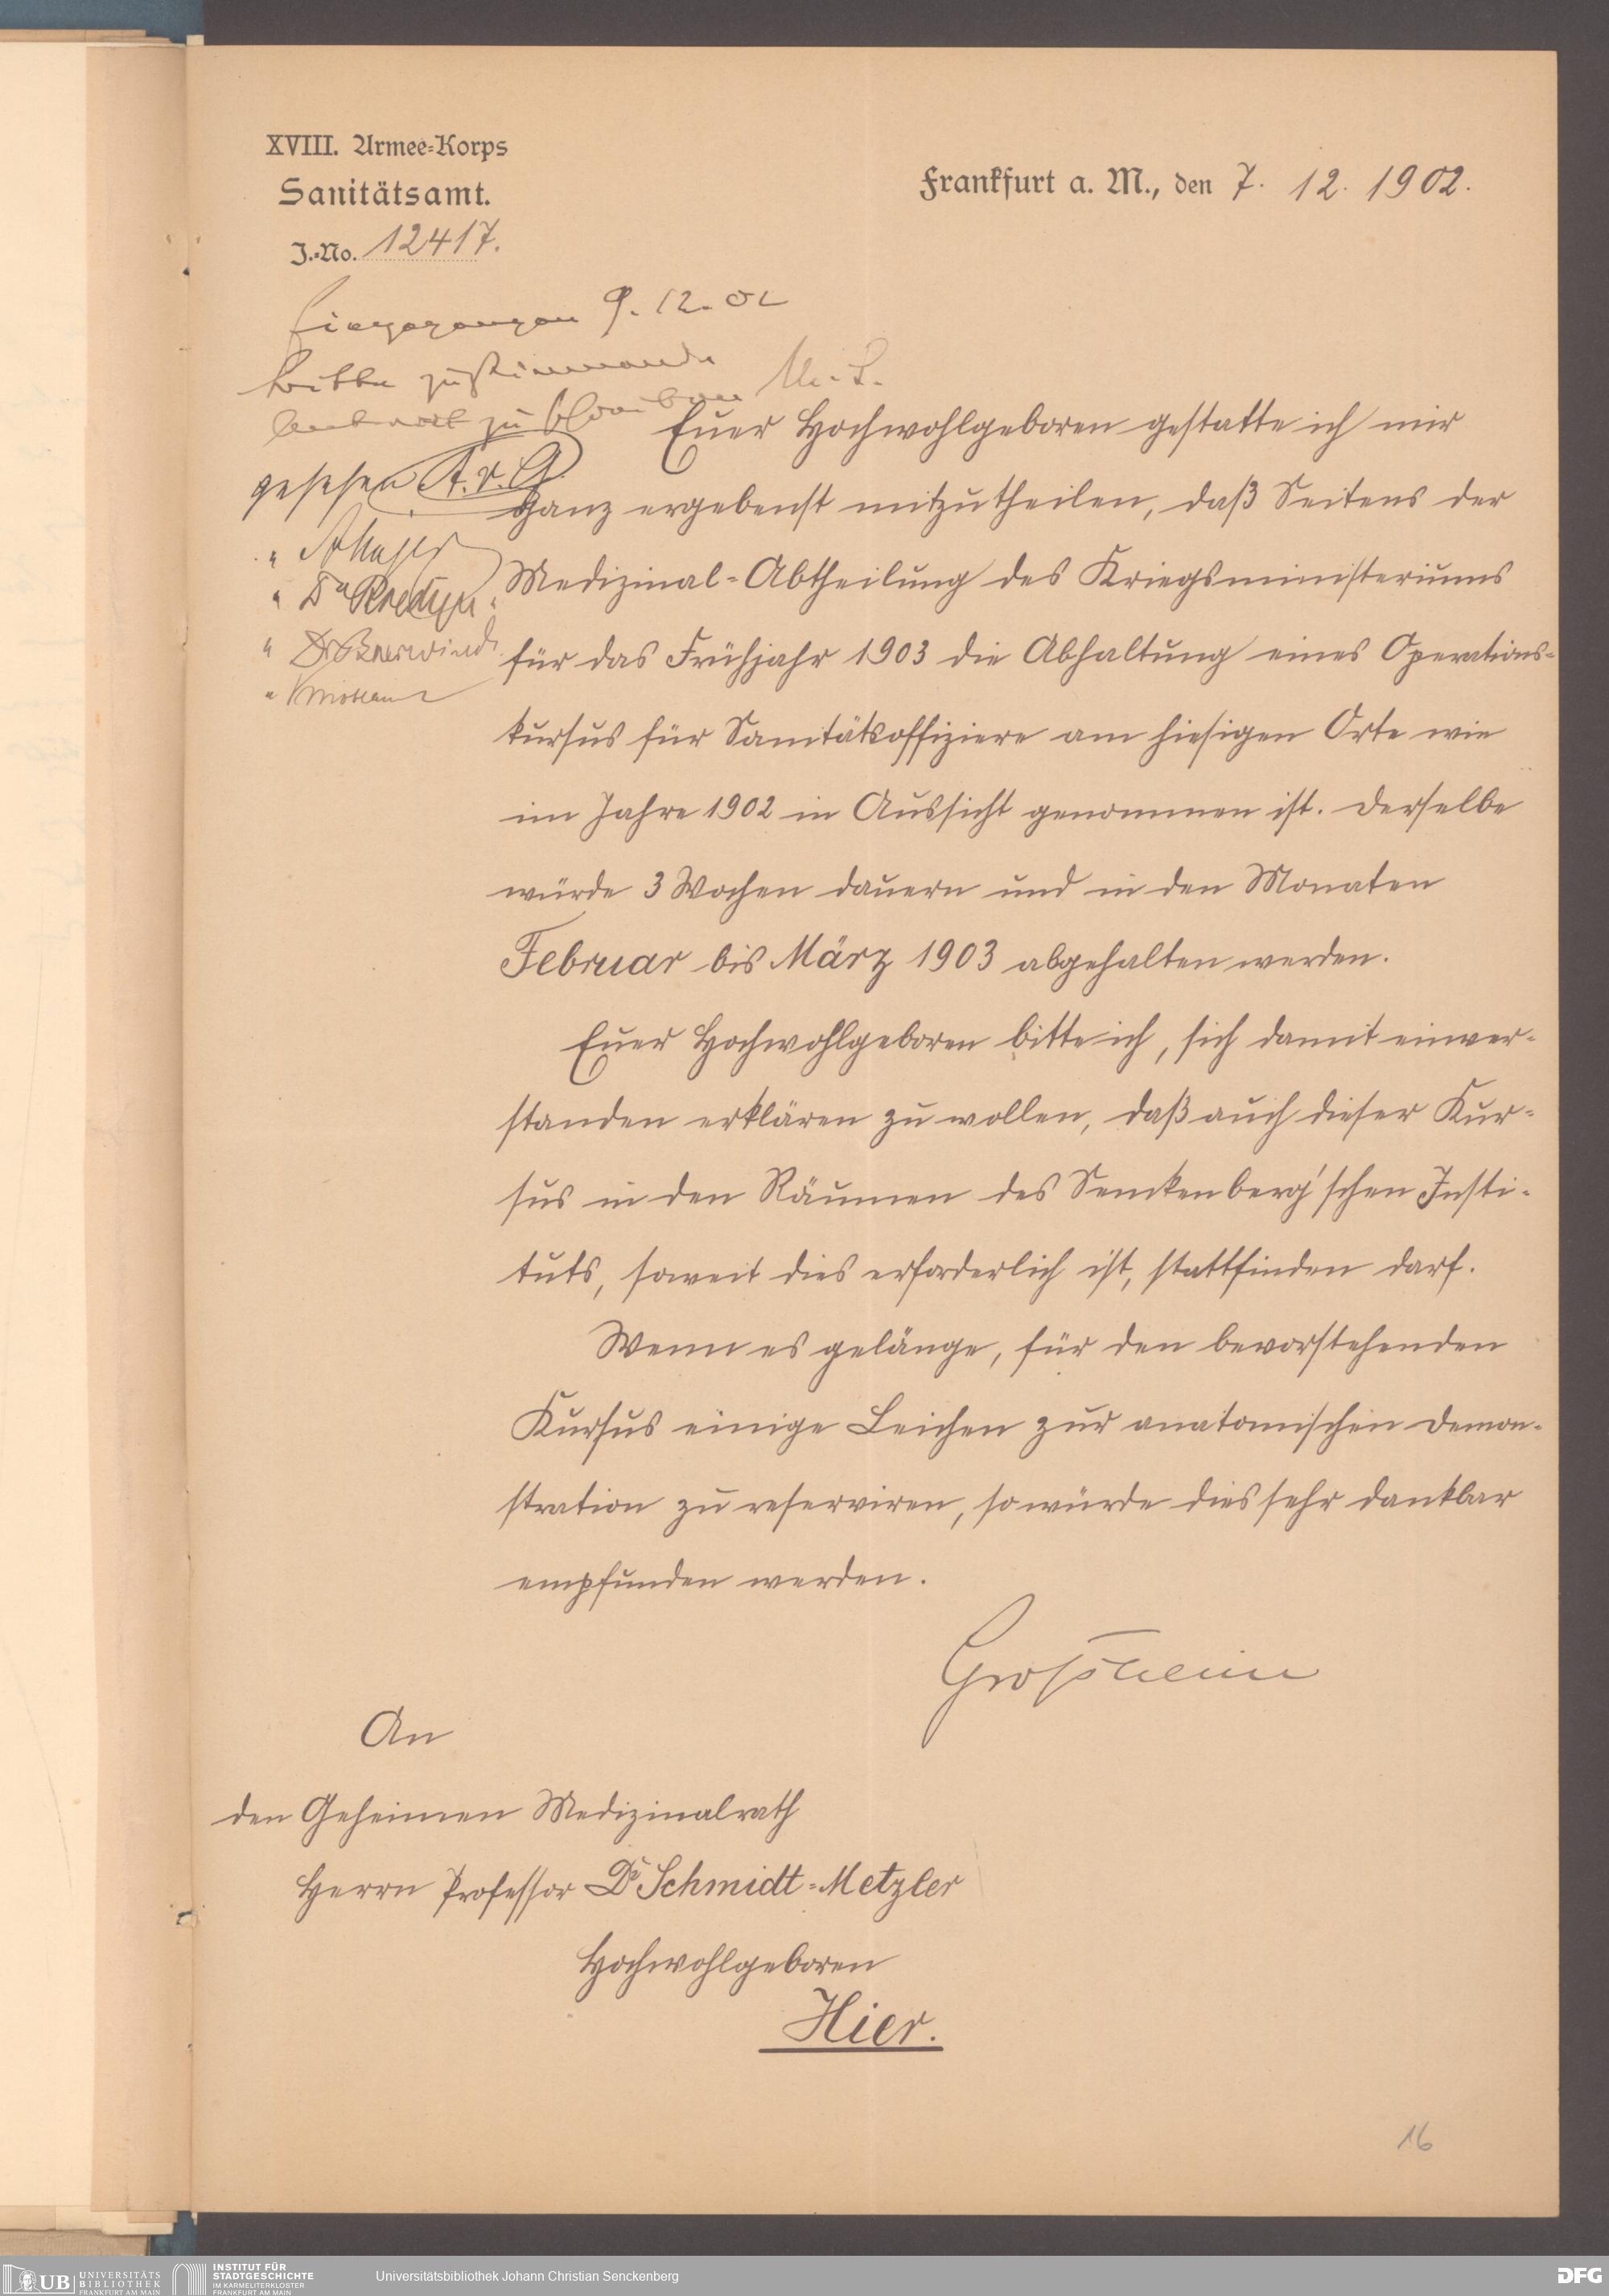 XVIII. Armee-Korps
Sanitätsamt.
J.-No. 12417.
Frankfurt a. M., den 7. 12. 1902.
Eingegangen 9. 12. 02
bitte zustimmende
Antwort zu schreiben M.S.
gesehen A.v.G.
"
" Dr
"
"
Euer Hochwohlgeboren gestatte ich mir
ganz ergebenst mitzutheilen, daß Seitens der
Medizinal-Abtheilung des Kriegsministeriums
für das Frühjahr 1903 die Abhaltung eines Operations-
kursus für Sanitätsoffiziere am hiesigen Orte wie
im Jahre 1902 in Aussicht genommen ist. Derselbe
würde 3 Wochen dauern und in den Monaten
Februar bis März 1903 abgehalten werden.
Euer Hochwohlgeboren bitte ich, sich damit einver-
standen erklären zu wollen, daß auch dieser Kur-
sus in den Räumen des Senckenberg'schen Insti-
tuts, soweit dies erforderlich ist, stattfinden darf.
Wenn es gelänge, für den bevorstehenden
Kursus einige Leichen zur anatomischen Demon-
stration zu reserviren, so würde dies sehr dankbar
empfunden werden.
Großheim
An
den Geheimen Medizinalrath
Herrn Professor Dr Schmidt-Metzler
Hochwohlgeboren
Hier.
16
UB UNIVERSITÄTS
BIBLIOTHEK
FRANKFURT AM MAIN
INSTITUT FÜR
STADTGESCHICHTE
IM KARMELITERKLOSTER
FRANKFURT AM MAIN
Universitätsbibliothek Johann Christian Senckenberg
DFG